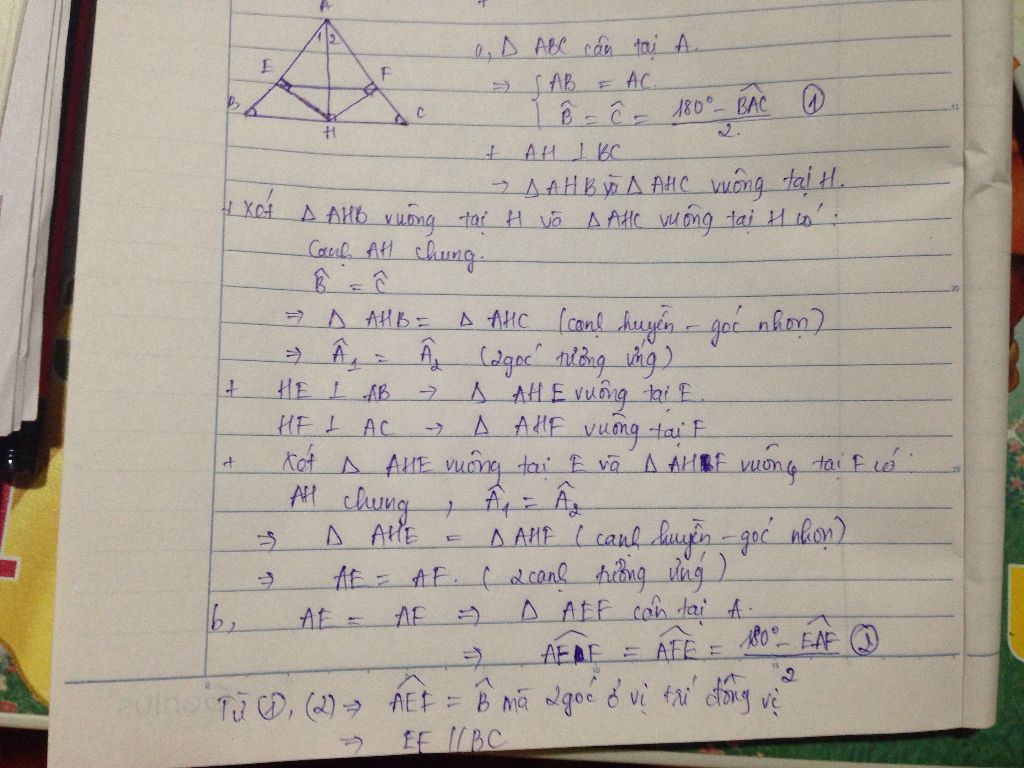 A
1 2
E
F
B
C
H
a, Δ ABC cân tại A.
⇒ { AB = AC.
B̂ = Ĉ = (180° - BAC^)/2. ①
+ AH ⊥ BC
→ Δ AHB và Δ AHC vuông tại H.
+ Xét Δ AHB vuông tại H và Δ AHC vuông tại H có :
Cạnh AH chung.
B̂ = Ĉ
⇒ Δ AHB = Δ AHC (cạnh huyền - góc nhọn)
⇒ Â1 = Â2 (2 góc tương ứng)
+ HE ⊥ AB → Δ AHE vuông tại E.
HF ⊥ AC → Δ AHF vuông tại F
+ Xét Δ AHE vuông tại E và Δ AHF vuông tại F có :
AH chung , Â1 = Â2
⇒ Δ AHE = Δ AHF (cạnh huyền - góc nhọn)
⇒ AE = AF. (2 cạnh tương ứng)
b, AE = AF ⇒ Δ AEF cân tại A.
⇒ AEF^ = AFE^ = (180° - EAF^)/2 ②
Từ (1), (2) ⇒ AEF^ = B̂ mà 2 góc ở vị trí đồng vị
⇒ EF // BC